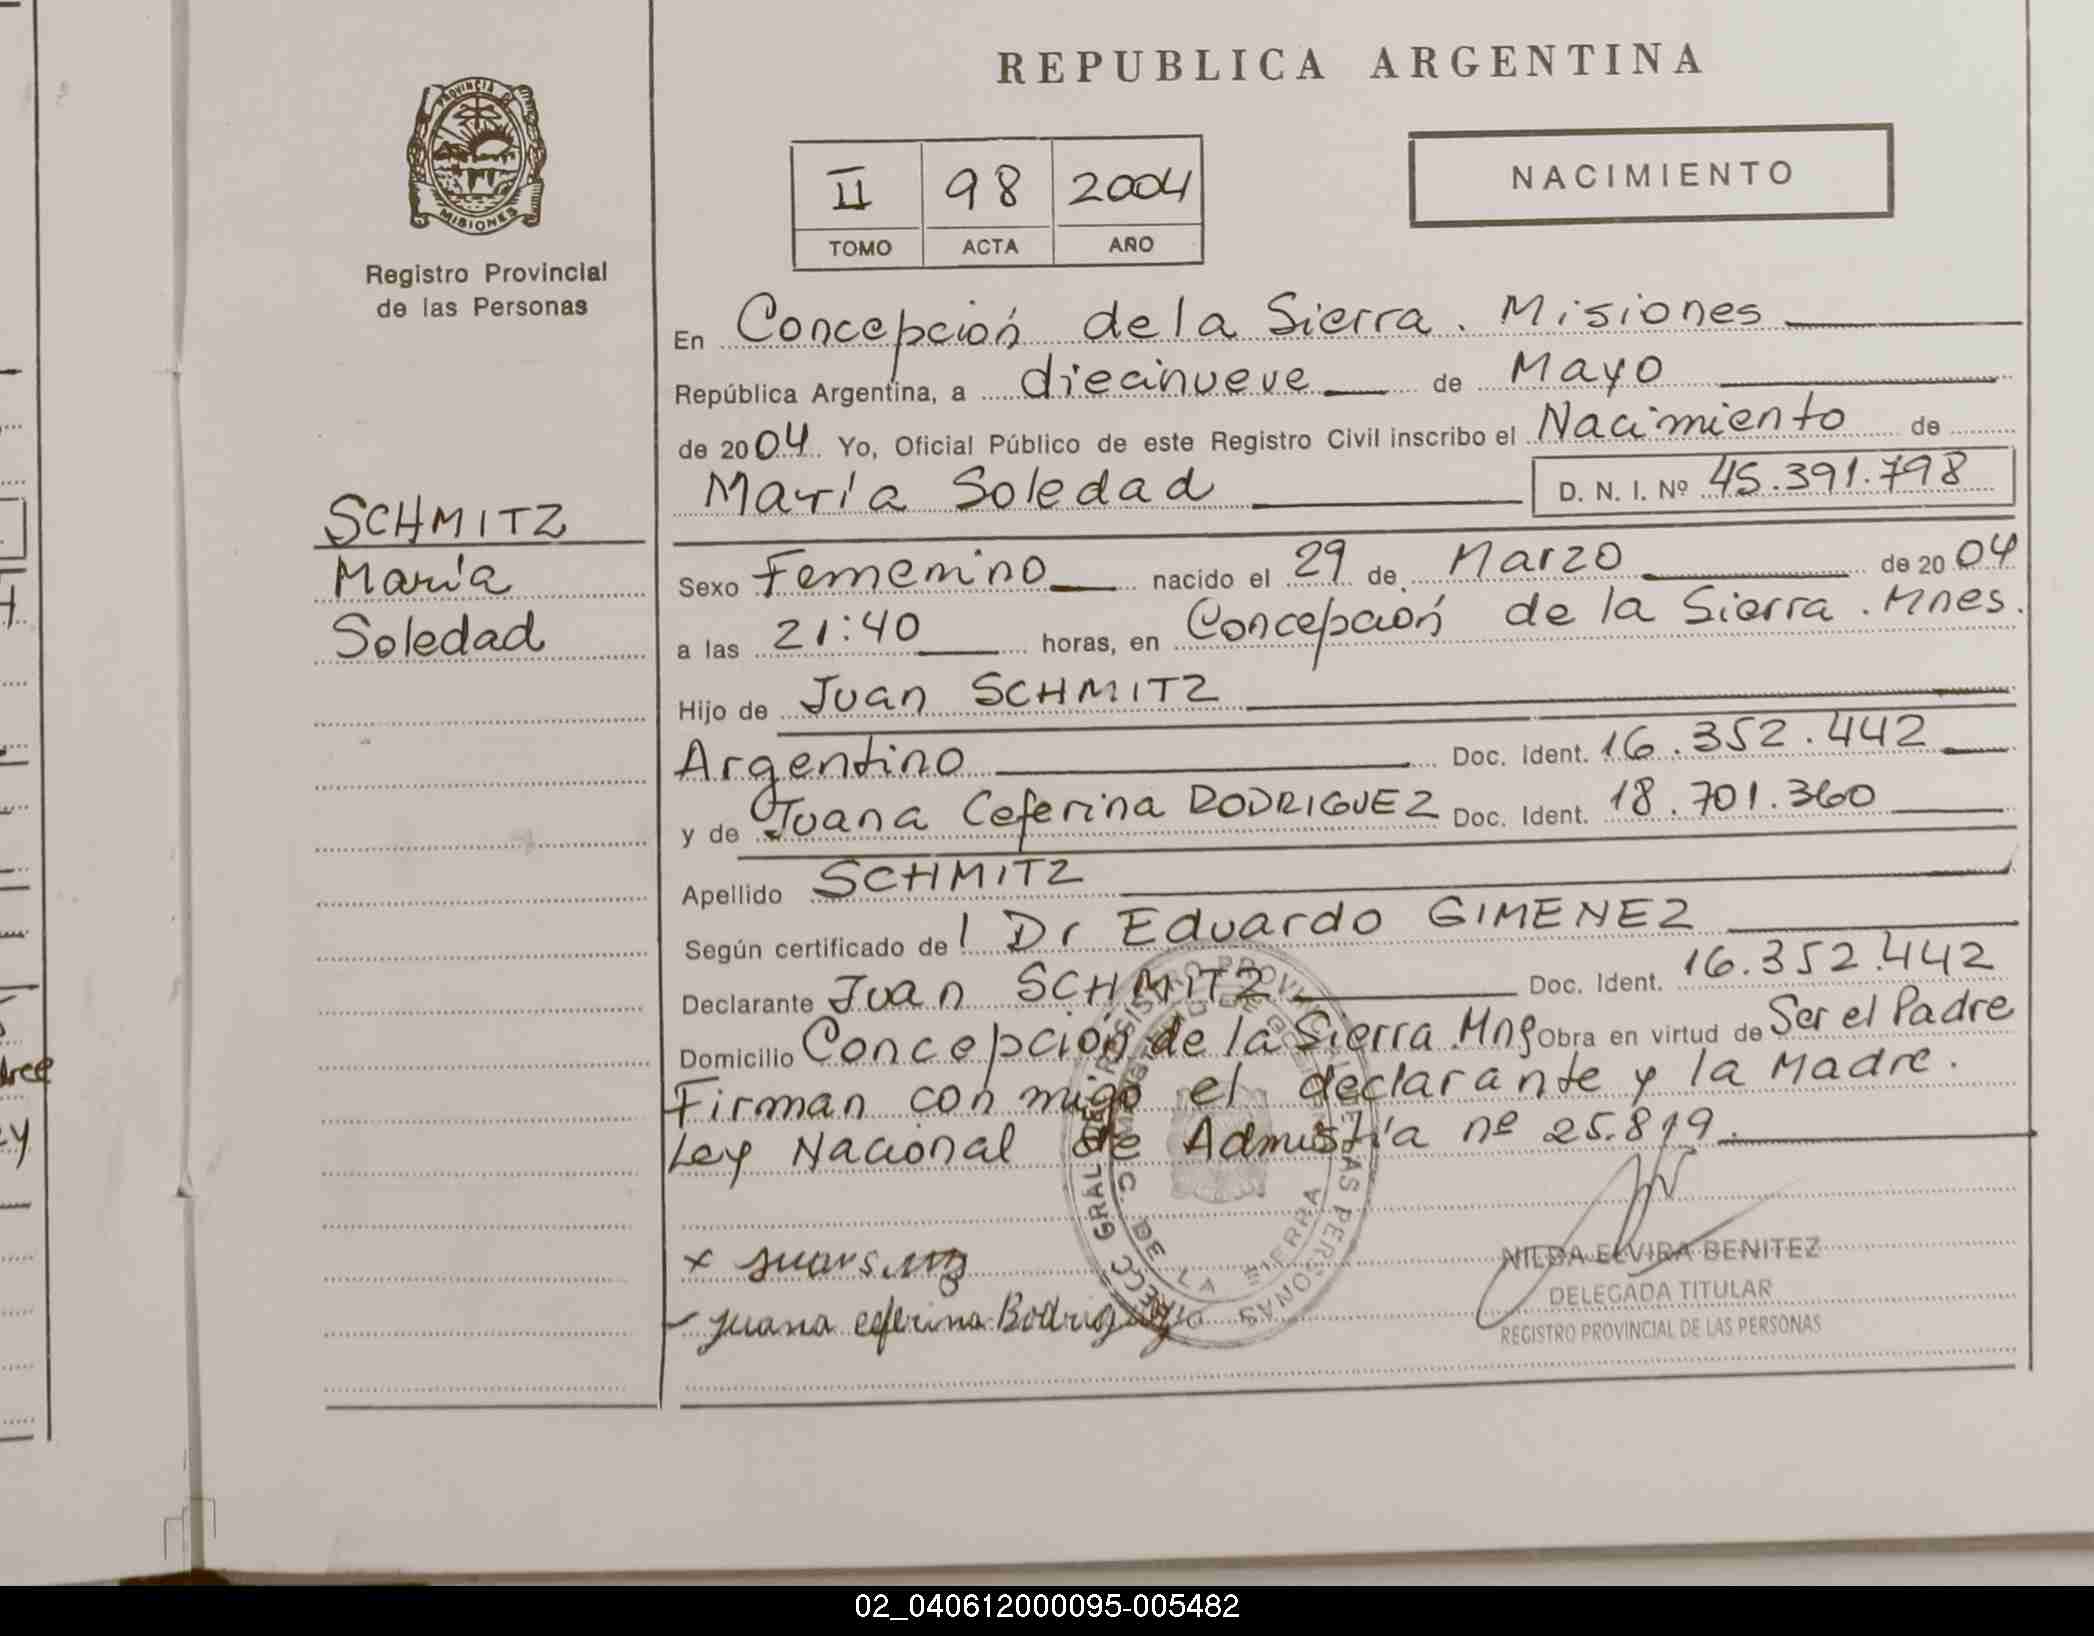 REPUBLICA ARGENTINA
PROVINCIA DE
MISIONES
Registro Provincial
de las Personas
II 98 2004
TOMO ACTA AÑO
NACIMIENTO
En Concepción de la Sierra. Misiones
República Argentina, a diecinueve de Mayo
de 2004 Yo, Oficial Público de este Registro Civil inscribo el Nacimiento de
María Soledad D. N. I. Nº 45.391.798
SCHMITZ
María
Soledad
Sexo Femenino nacido el 29 de Marzo de 2004
a las 21:40 horas, en Concepción de la Sierra. Mnes.
Hijo de Juan SCHMITZ
Argentino Doc. Ident. 16.352.442
y de Juana Ceferina RODRIGUEZ Doc. Ident. 18.701.360
Apellido SCHMITZ
Según certificado de Dr Eduardo GIMENEZ
Declarante Juan SCHMITZ Doc. Ident. 16.352.442
Domicilio Concepción de la Sierra. Mns Obra en virtud de Ser el Padre
Firman con migo el declarante y la Madre.
Ley Nacional de Admistía nº 25.819.
x
Juana ceferina Rodriguez
C. DE LA SIERRA
NILDA ELVIRA BENITEZ
DELEGADA TITULAR
REGISTRO PROVINCIAL DE LAS PERSONAS
02_040612000095-005482